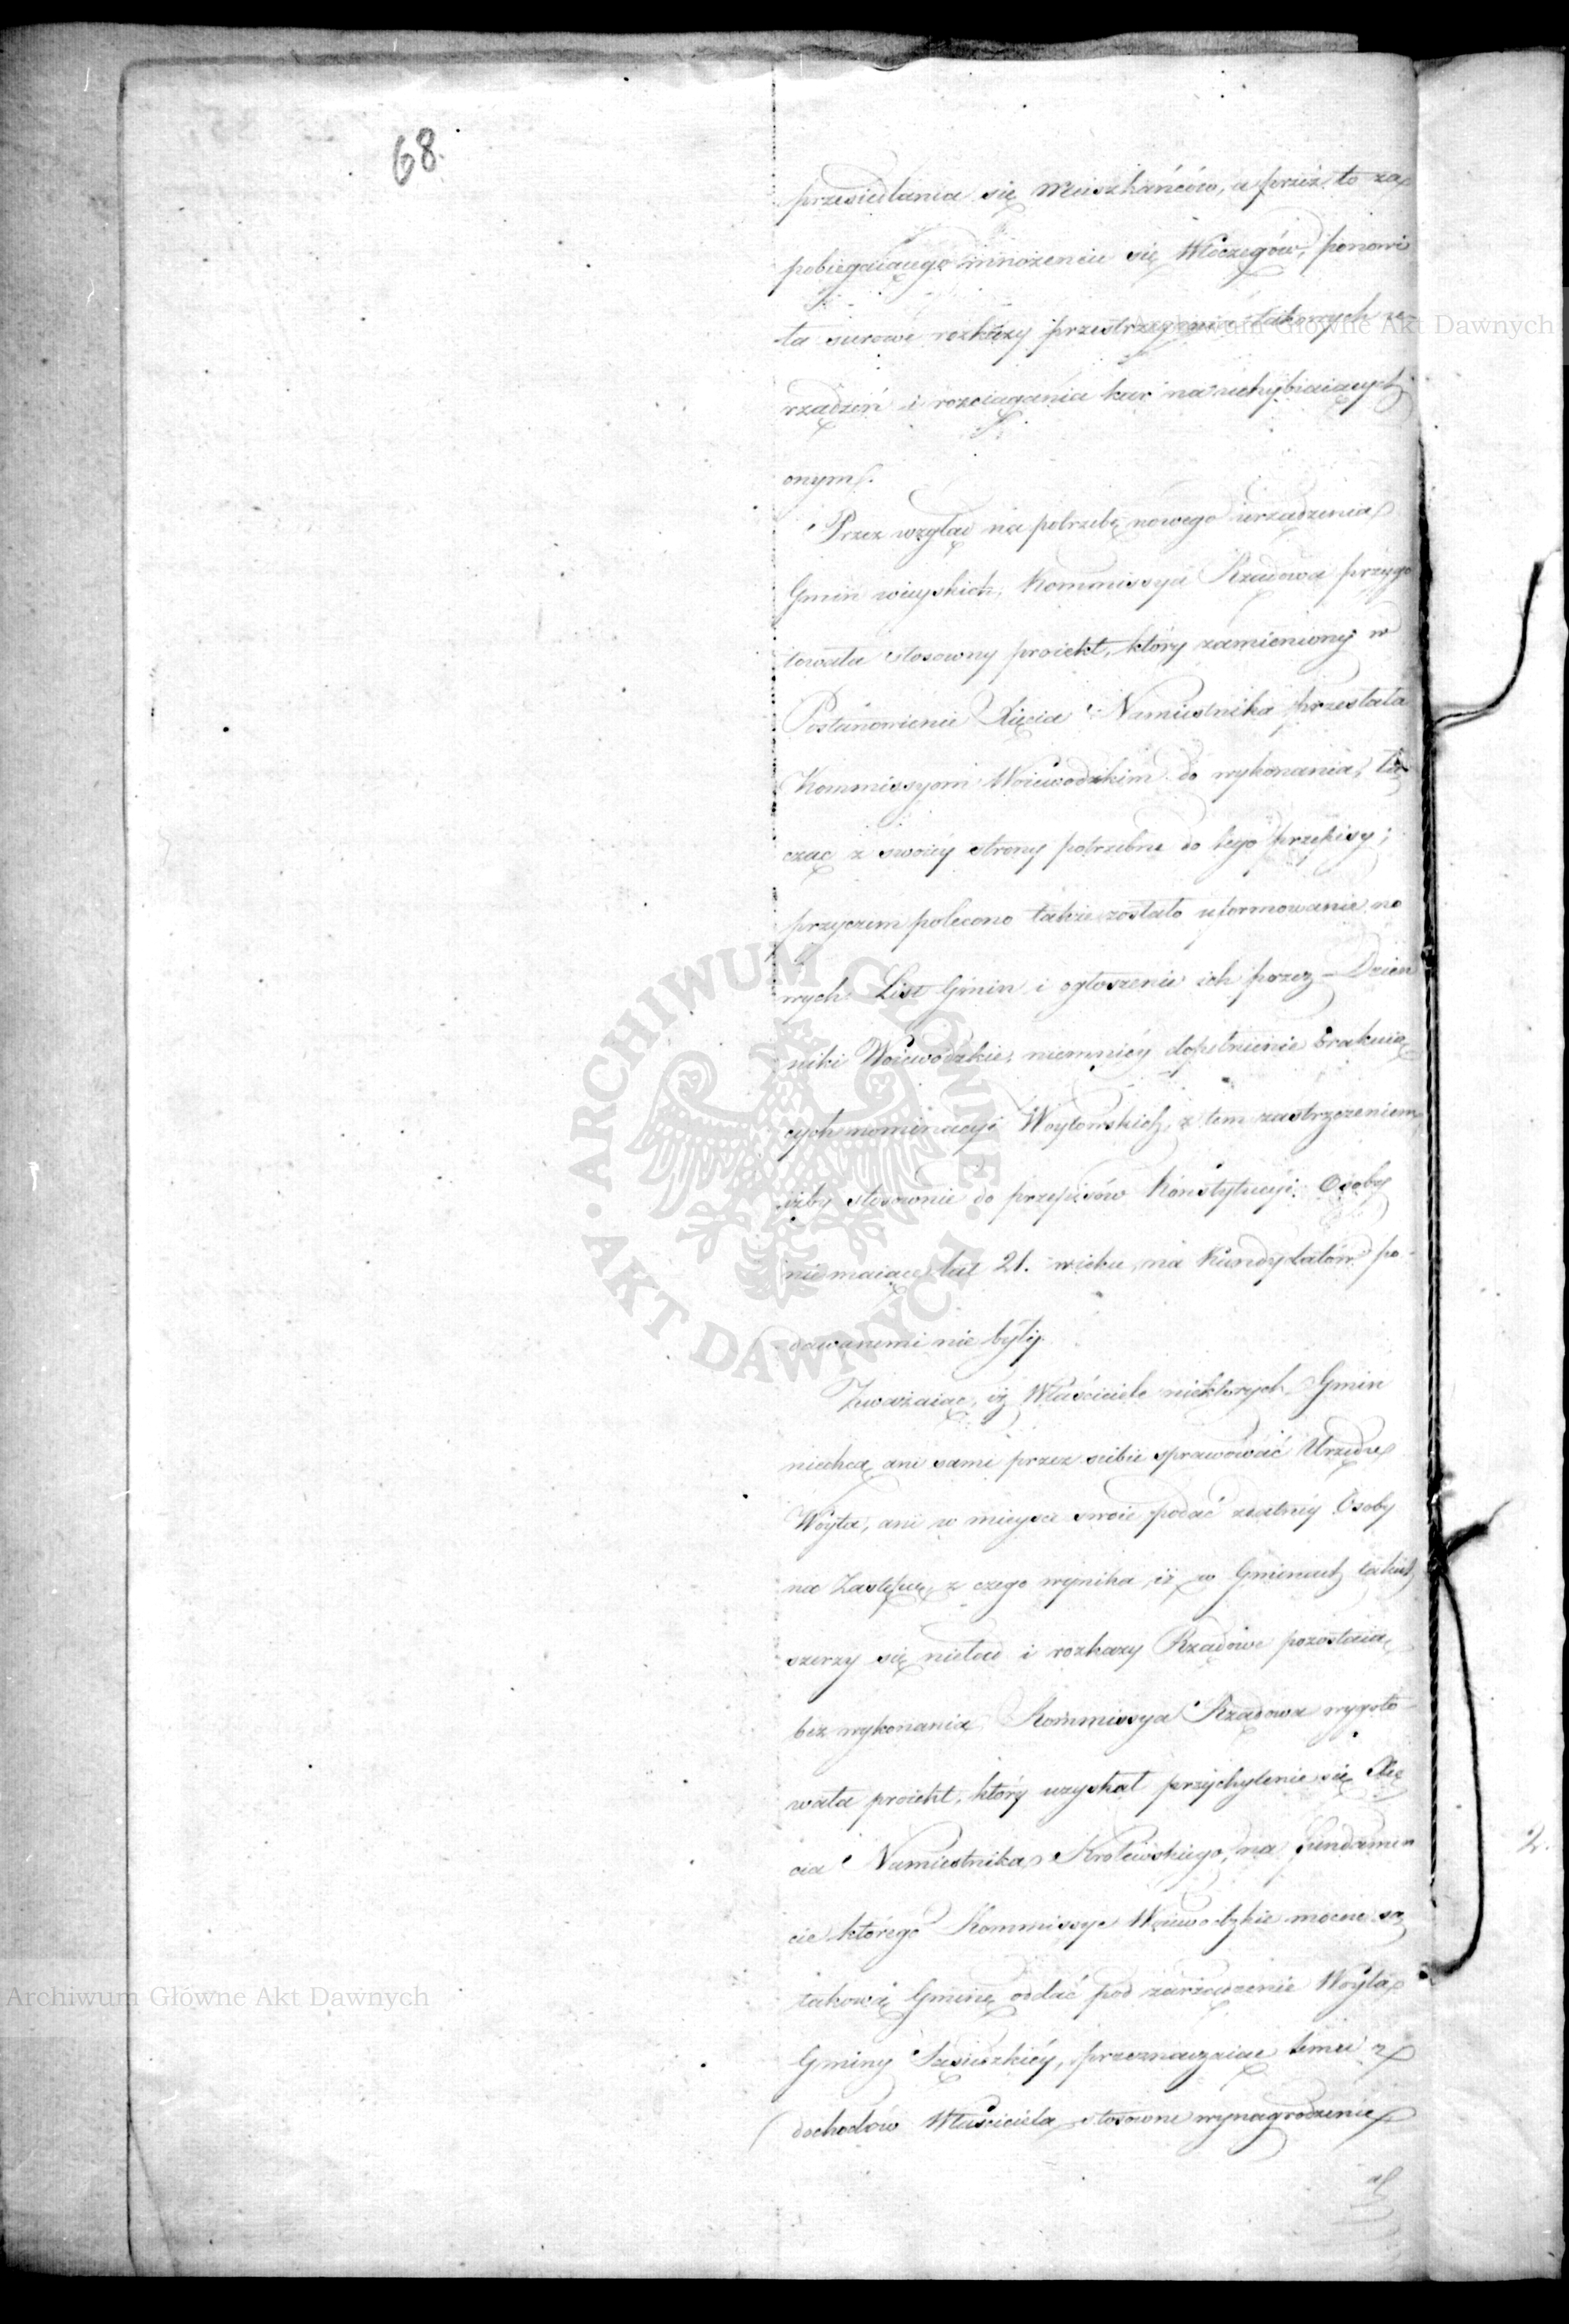 68.
przesiedlania się Mieszkańców, a przez to za
pobiegaiącego mnożeniu się Włóczęgów, ponowi
ła surowe rozkazy przestrzegania takowych u-
rządzeń i rozciągania kar na uchybiaiących
onym.
Przez wzgląd na potrzebę nowego urządzenia
Gmin wieyskich, Kommissya Rządowa przygo
towała stosowny proiekt, który zamieniony w
Postanowienie Xięcia Namiestnika przesłała
Kommissyom Woiewodzkim do wykonania, łą-
cząc z swoiéy strony potrzebne do tego przepisy;
przyczem polecono także zostało uformowanie no
wych List Gmin i ogłoszenie ich przez Dzien
niki Woiewódzkie, niemniéy dopełnienie brakuią
cych nominacyi Woytowskich, z tem zastrzeżeniem
iżby stosownie do przepisów Konstytucyi Osoby
niemaiące lat 21. wieku, na Kandydatów po-
dawanemi nie były.
Zważaiąc, iż Właściciele niektórych Gmin
niechcą ani sami przez siebie sprawować Urzędu
Woyta, ani w mieysce swoie podać zdatnéy Osoby
na Zastępcę, z czego wynika, iż w Gminach takich
szerzy się nieład i rozkazy Rządowe pozostaią
bez wykonania, Kommissya Rządowa wygoto-
wała proiekt, który uzyskał przychylenie się Xię
cia Namiestnika Królewskiego, na fundamen
cie którego Kommissye Woiewodzkie mocne są
takową Gminę oddać pod zarządzenie Woyta
Gminy Sąsiedzkiéy, przeznaczaiąc temu z
dochodów Właściciela stosowne wynagrodzenie
2.
Archiwum Główne Akt Dawnych
Archiwum Główne Akt Dawnych
ARCHIWUM GŁÓWNE AKT DAWNYCH